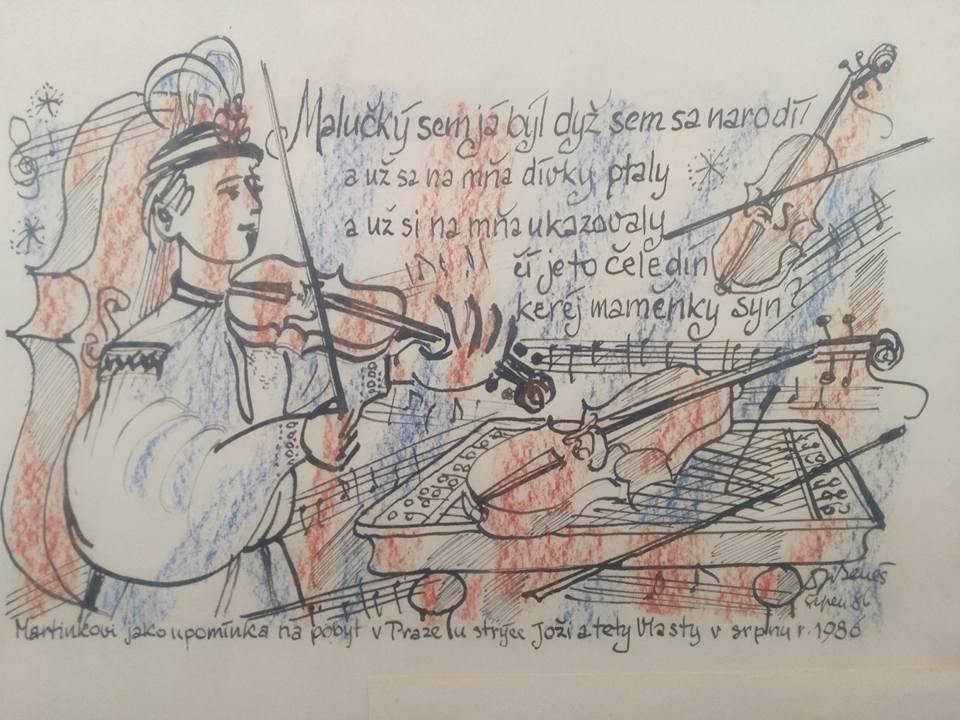 Malučký sem já býl dyž sem sa narodil
a už sa na mňa dívky ptaly
a už si na mňa ukazovaly
čí je to čeledín
kerej mameňky syn?
Beneš
srpen 86
Martinkovi jako upomínka na pobyt v Praze u strýce Joži a tety Vlasty v srpnu r. 1986